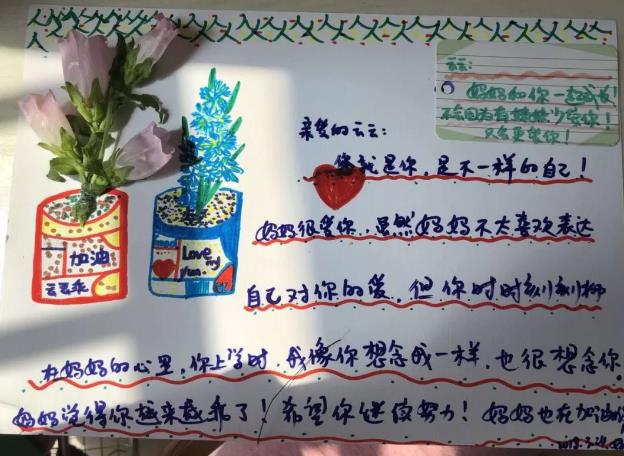 云云：
妈妈和你一起成长！
不会因为有妹妹少爱你！
只会更爱你！
亲爱的云云：
你就是你，是不一样的自己！
妈妈很爱你，虽然妈妈不太喜欢表达
自己对你的爱，但你时时刻刻都
在妈妈的心里，你上学时，我像你想念我一样，也很想念你
妈妈觉得你越来越乖了！希望你继续努力！妈妈也在加油
加油
云云乖
Love my Yun.